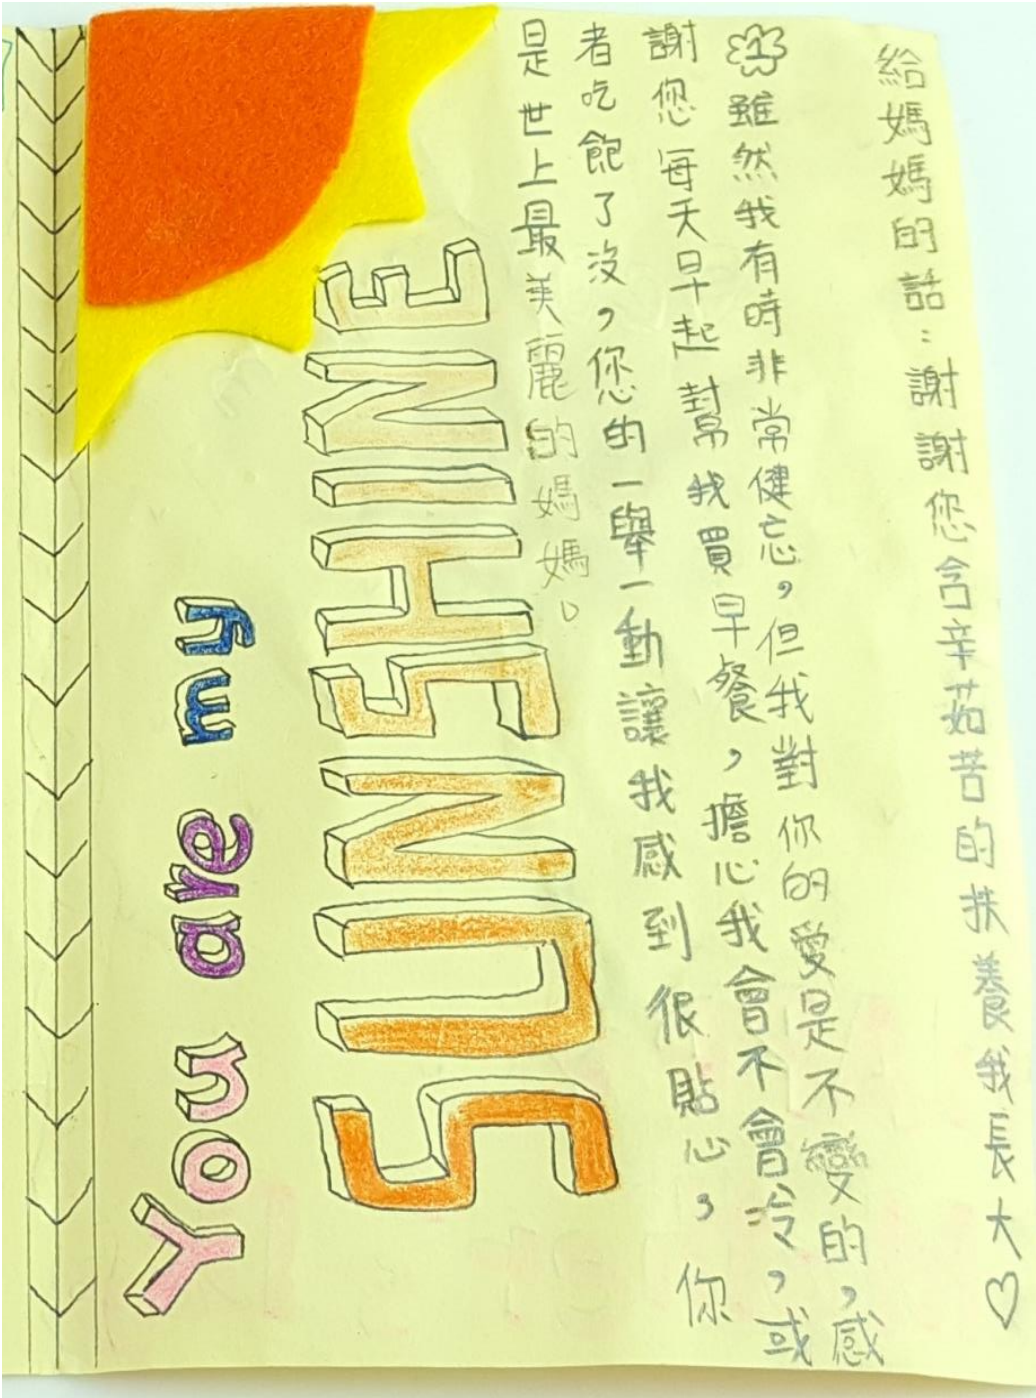 給媽媽的話：謝謝您含辛茹苦的扶養我長大♡
雖然我有時非常健忘，但我對你的愛是不變的，感
謝您每天早起幫我買早餐，擔心我會不會冷，或
者吃飽了沒，您的一舉一動讓我感到很貼心，你
是世上最美麗的媽媽。
You are my
SUNSHINE